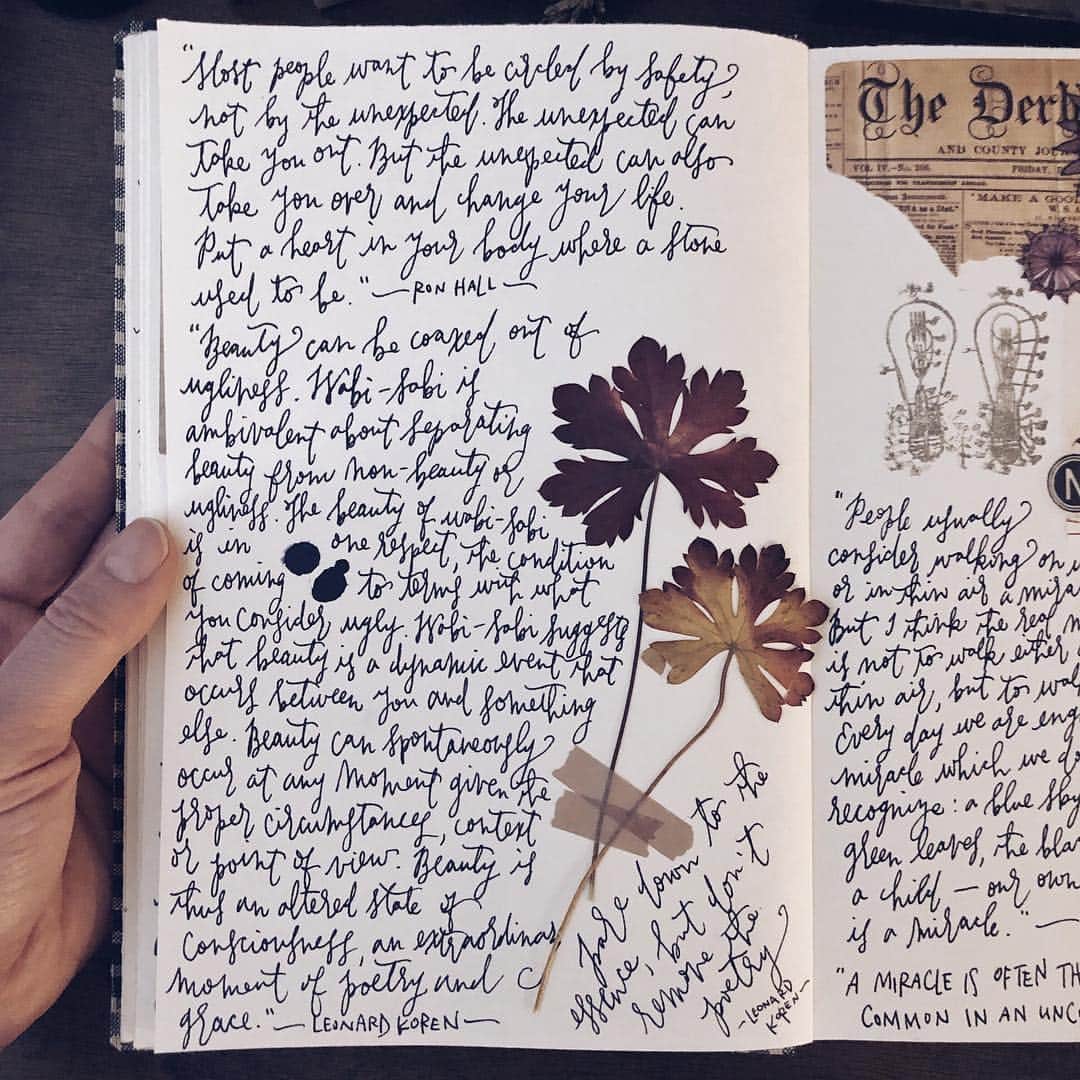 "Most people want to be circled by safety,
not by the unexpected. The unexpected can
take you out. But the unexpected can also
take you over and change your life.
Put a heart in your body where a stone
used to be." — RON HALL —
"Beauty can be coaxed out of
ugliness. Wabi-sabi is
ambivalent about separating
beauty from non-beauty or
ugliness. The beauty of wabi-sabi
is in one respect, the condition
of coming to terms with what
you consider ugly. Wabi-sabi suggests
that beauty is a dynamic event that
occurs between you and something
else. Beauty can spontaneously
occur at any moment given the
proper circumstances, context
or point of view. Beauty is
thus an altered state of
consciousness, an extraordinary
moment of poetry and
grace." — LEONARD KOREN —
pare down to the
essence, but don't
remove the
poetry
- LEONARD
KOREN -
The Derb
AND COUNTY JOU
VOL. IV.-No. 206. FRIDAY,
"MAKE A GOO
W. S.
N
"People usually
consider walking on w
or in thin air a mira
But I think the real m
is not to walk either
thin air, but to wal
Every day we are eng
miracle which we do
recognize: a blue sky
green leaves, the bla
a child — our own
is a miracle." —
"A MIRACLE IS OFTEN TH
COMMON IN AN UNC